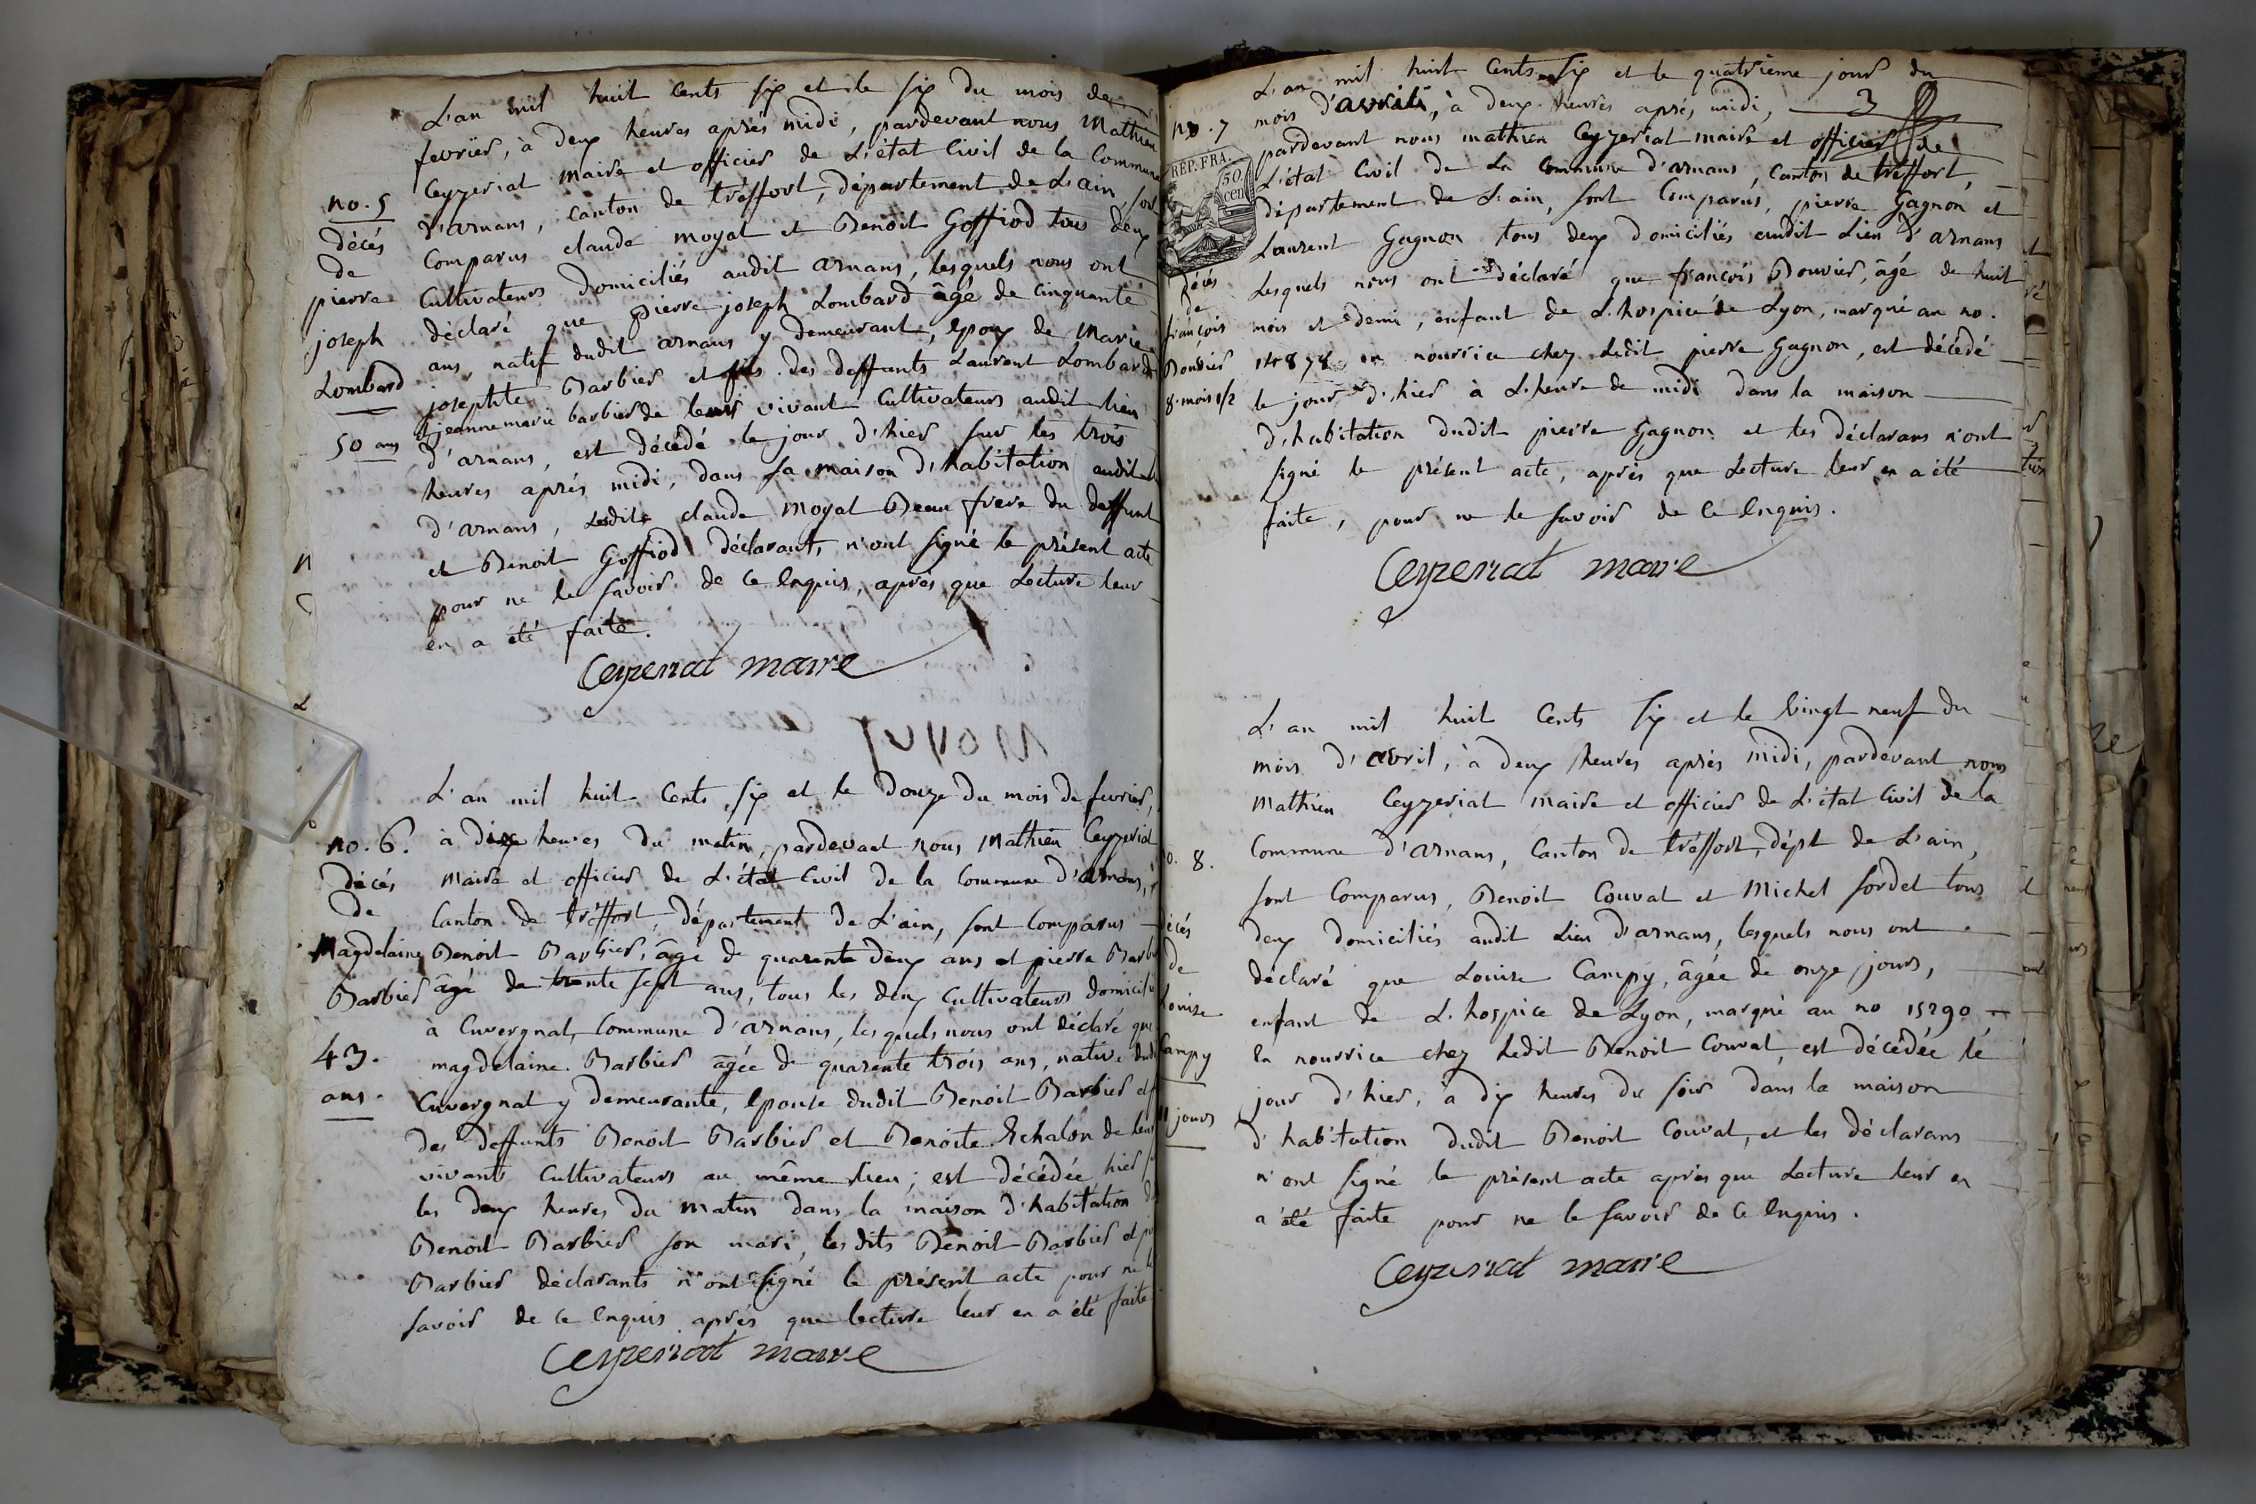 L'an mil huit cents six et le six du mois de
fevrier, à deux heures après midi, pardevant nous Mathieu
Ceyzeriat maire et officier de L'état Civil de la Commune
d'arnans, canton de tréffort, département de L'ain, sont
Comparus claude moyat et Benoit Goffiod tous deux
Cultivateurs domiciliés audit arnans, lesquels nous ont
déclaré que pierre joseph Lombard âgé de cinquante
ans, natif dudit arnans y demeurant, Epoux de Marie
josephte Barbier et fils des deffunts Laurent Lombard
et jeanne marie barbier de leurs vivant Cultivateurs audit lieu
d'arnans, est décédé le jour d'hier sur les trois
heures après midi, dans sa maison d'habitation audit
d'arnans, Ledit claude moyat Beau frere du deffunt
et Benoit Goffiod déclarants, n'ont signé le présent acte
pour ne le savoir de ce Enquis, après que Lecture leur
en a été faite.
Ceyzeriat maire
no. 5
décés
de
pierre
joseph
Lombard
50 ans
L'an mil huit Cents six et le douze du mois de fevrier,
à dix heures du matin, pardevant nous Mathieu Ceyzeriat
Maire et officier de L'état Civil de la Commune d'arnans,
Canton de tréffort, département de L'ain, sont Comparus
Benoit Barbier, âgé de quarente deux ans et pierre
âgé de trente sept ans, tous les deux Cultivateurs
à Cuvergnat, Commune d'arnans, lesquels nous ont déclaré que
magdelaine Barbier âgée de quarente trois ans, native
Cuvergnat y demeurante, Epouse dudit Benoit Barbier et
des deffunts Benoit Barbier et Benoite Echalon de leur
vivants Cultivateurs au même Lieu, est décédée hier
les deux heures du matin dans la maison d'habitation
Benoit Barbier son mari, lesdits Benoit Barbier et
Barbier déclarants n'ont signé le présent acte pour ne
savoir de ce Enquis après que lecture leur en a été faite
Ceyzeriat maire
no. 6.
décés
de
Magdelaine
Barbier
43.
ans.
3
L'an mil huit Cents six et le quatrieme jour du
mois d'avril, à deux heures après midi,
pardevant nous mathieu Ceyzeriat maire et officier de
L'état Civil de la Commune d'arnans, Canton de tréffort,
département de L'ain, sont Comparus, pierre Gagnon et
Laurent Gagnon tous deux domiciliés audit Lieu d'arnans
Lesquels nous ont déclaré que françois Bouvier, âgé de huit
mois et demi, enfant de L'hospice de Lyon, marqué au no.
14878 en nourrice chez Ledit pierre Gagnon, est décédé
le jour d'hier à L'heure de midi dans la maison
d'habitation dudit pierre Gagnon et les déclarans n'ont
signé le présent acte, après que Lecture leur en a été
faite, pour ne le savoir de ce Enquis.
Ceyzeriat maire
no. 7
REP. FRA.
50
cen
décés
de
françois
Bouvier
8. mois 1/2
L'an mil huit Cents six et le vingt neuf du
mois d'avril, à deux heures après midi, pardevant nous
Mathieu Ceyzeriat maire et officier de L'état Civil de la
Commune d'arnans, Canton de tréffort, dépt de L'ain,
sont Comparus, Benoit Couvat et Michel Sordet tous
deux domiciliés audit Lieu d'arnans, lesquels nous ont
déclaré que Louise Campy, âgée de onze jours,
enfant de L'hospice de Lyon, marqué au no 15290
En nourrice chez Ledit Benoit Couvat, est décédée le
jour d'hier, à dix heures du soir dans la maison
d'habitation dudit Benoit Couvat, et les déclarans
n'ont signé le présent acte après que Lecture leur en
a été faite pour ne le savoir de ce Enquis.
Ceyzeriat maire
8.
décés
de
Louise
Campy
11 jours